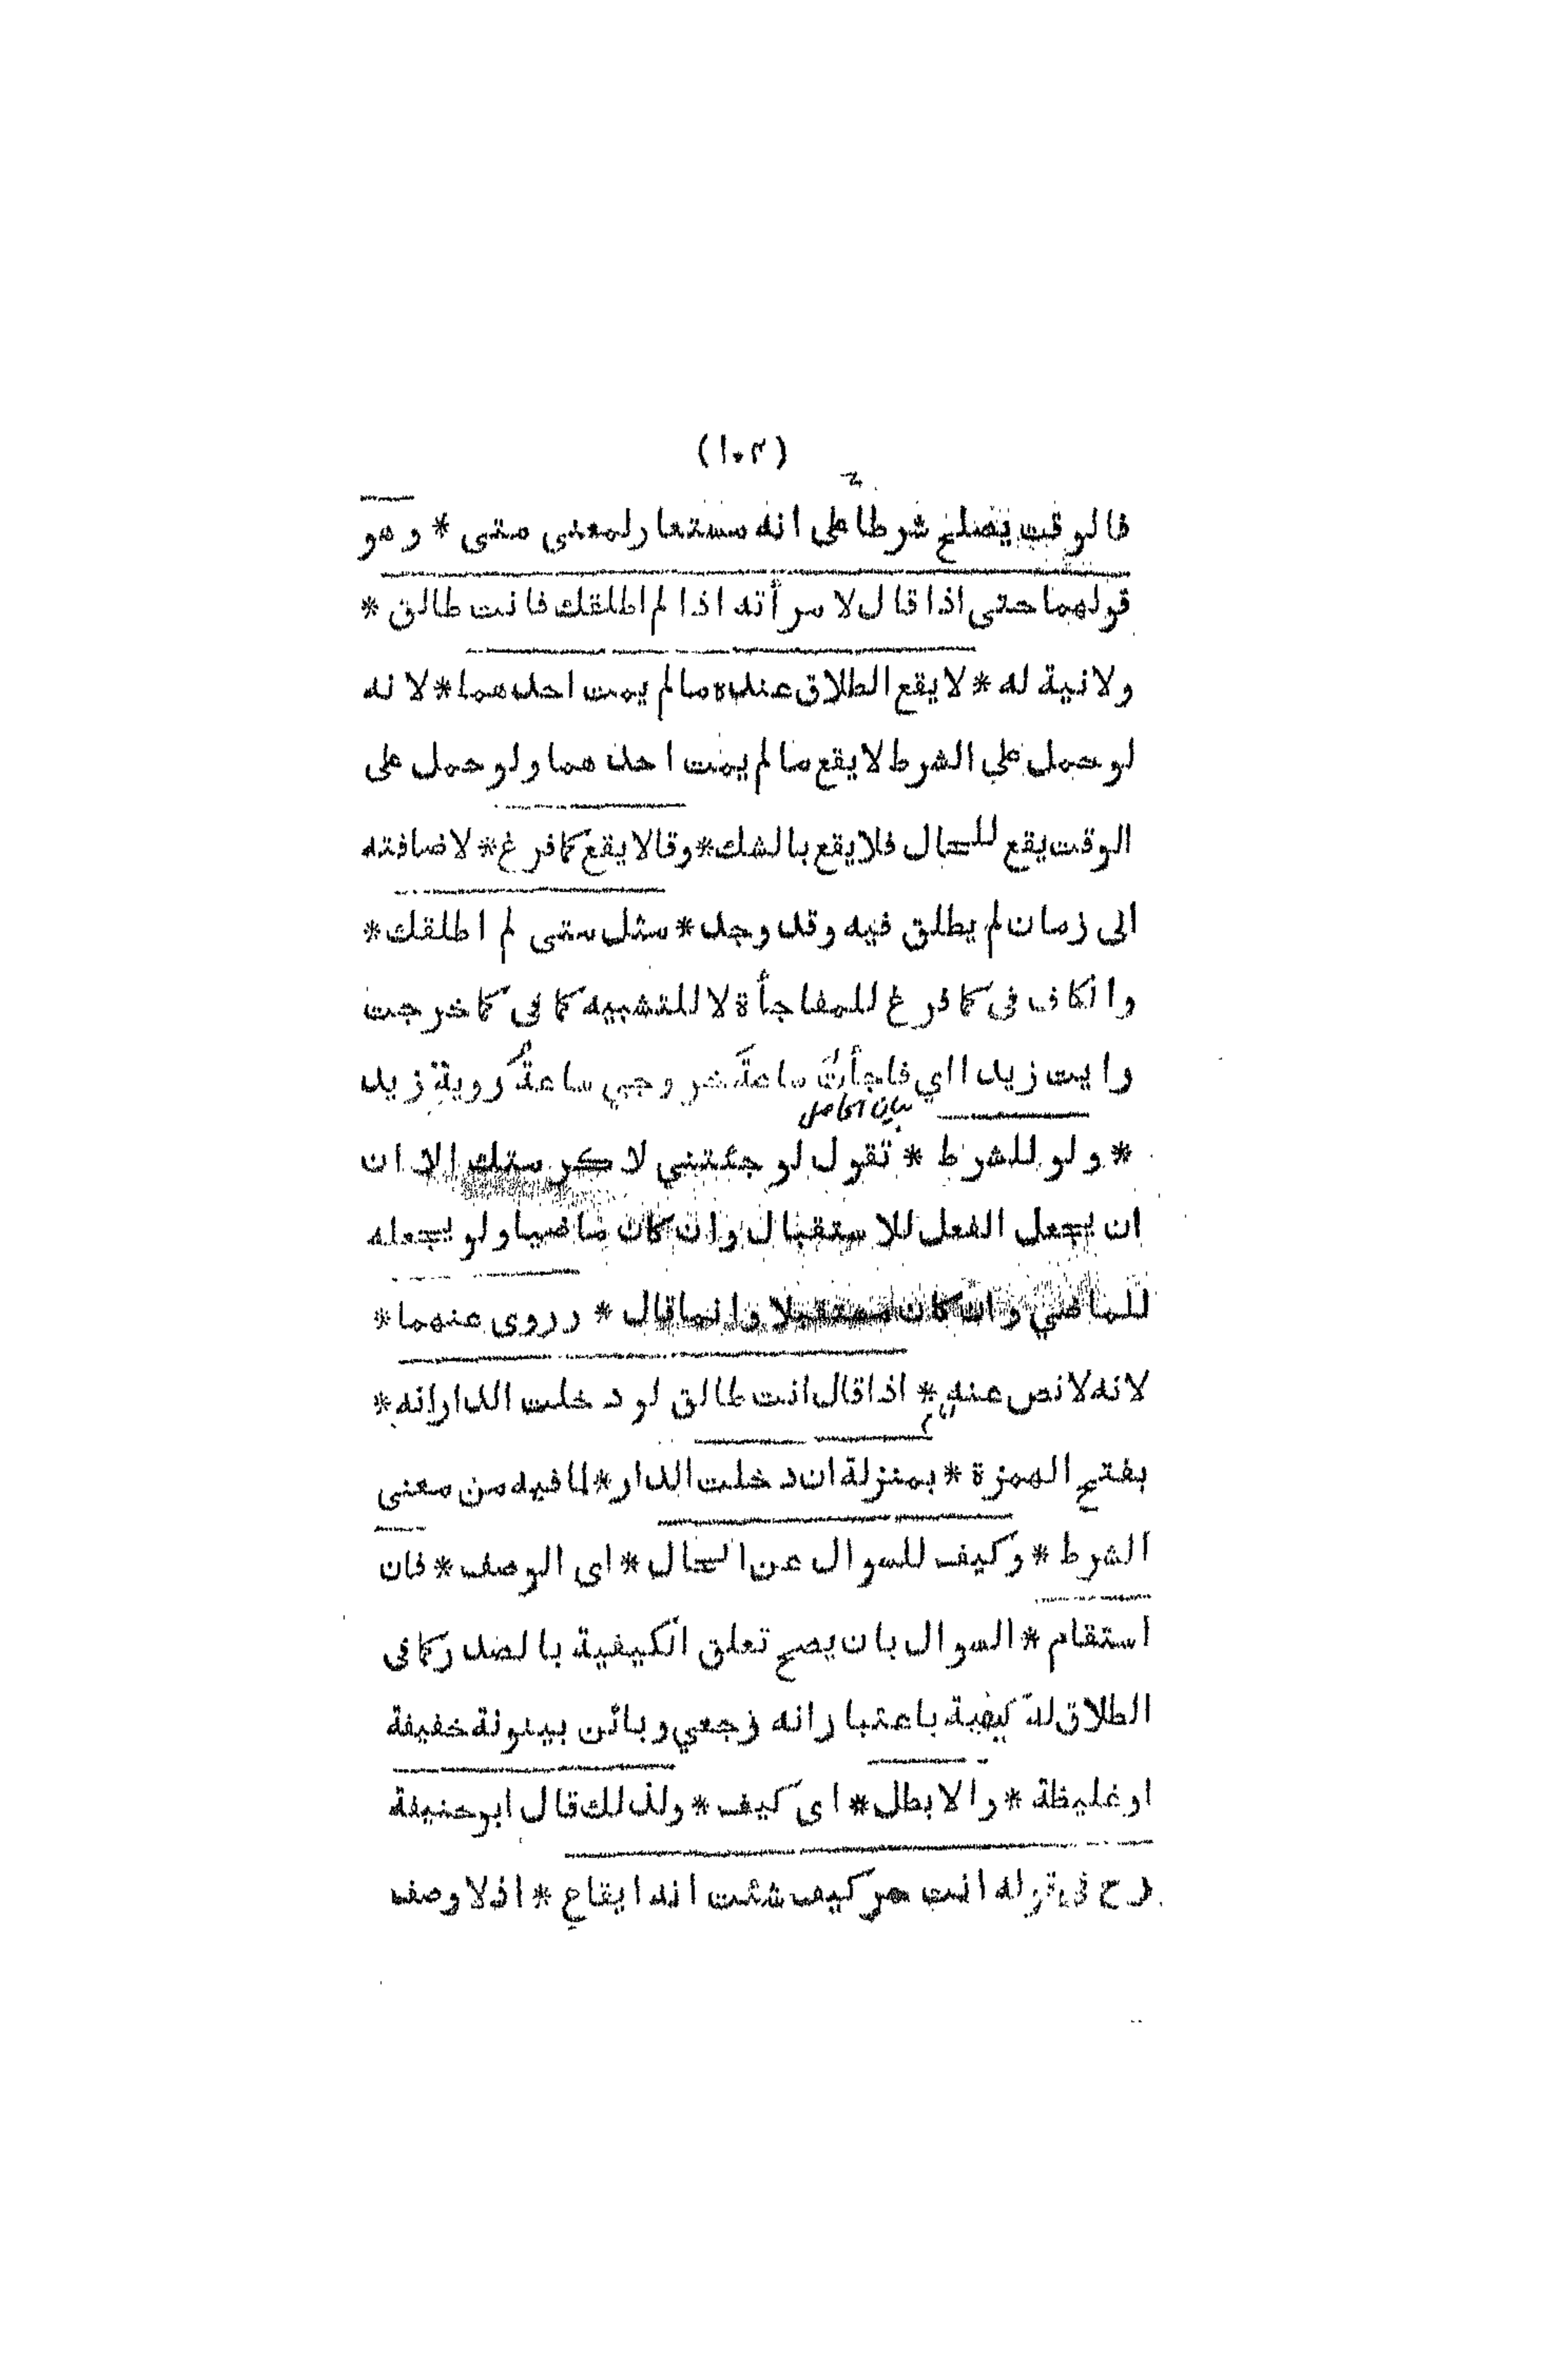 (١٠٣)
فالوقت يصلح شرطا على انه مستعار لمعنى متى * وهو
قولهما حتى اذا قال لامرأته اذا لم اطلقك فانت طالق *
ولانية له * لا يقع الطلاق عنده مالم يمت احدهما * لانه
لو حمل على الشرط لا يقع مالم يمت احدهما ولو حمل على
الوقت يقع للحال فلا يقع بالشك * وقالا يقع كما فرغ * لاضافته
الى زمان لم يطلق فيه وقد وجد * مثل متى لم اطلقك *
والكاف في كما فرغ للمفاجأة لا للتشبيه كما في كما خرجت
رايت زيدا اي فاجأت ساعة خروجي ساعة روية زيد
بيان الحاصل
* ولو للشرط * تقول لو جئتني لاكرمتك الا ان
ان يجعل الفعل للاستقبال وان كان ماضيا ولو يجعله
للماضي وان كان مستقبلا وانما قال * وروى عنهما *
لانه لا نص عنه * اذا قال انت طالق لو دخلت الدار انه *
بفتح الهمزة * بمنزلة ان دخلت الدار * لما فيه من معنى
الشرط * وكيف للسوال عن الحال * اى الوصف * فان
استقام * السوال بان يصح تعلق الكيفية بالصدر كما فى
الطلاق له كيفية باعتبار انه رجعي وبائن بينونة خفيفة
او غليظة * والا بطل * اى كيف * ولذلك قال ابو حنيفة
رح فى قوله انت حر كيف شئت انه ايقاع * اذ لا وصف